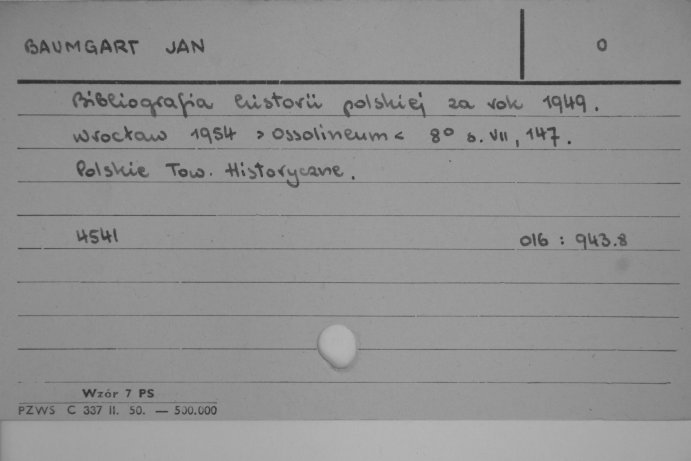 BAUMGART JAN
0
Bibliografia historii polskiej za rok 1949.
Wrocław 1954 >Ossolineum< 8° s. VII, 147.
Polskie Tow. Historyczne.
4541 016 : 943.8
Wzór 7 PS
PZWS C 337 II. 50. — 500.000